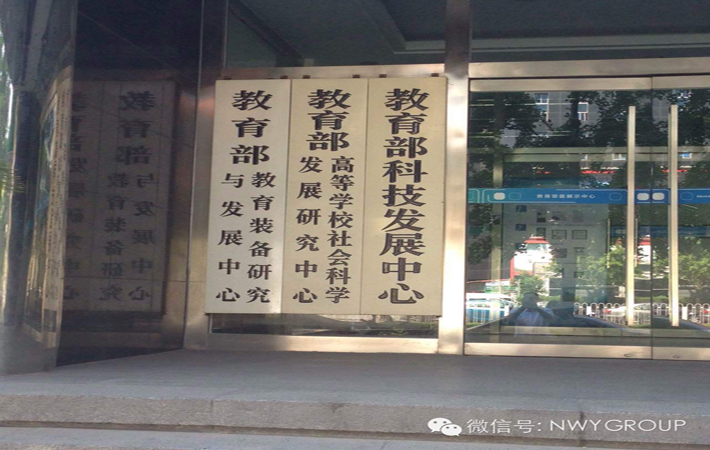 教育部科技发展中心
教育部
高等学校社会科学
发展研究中心
教育部
教育装备研究
与发展中心
微信号: NWYGROUP